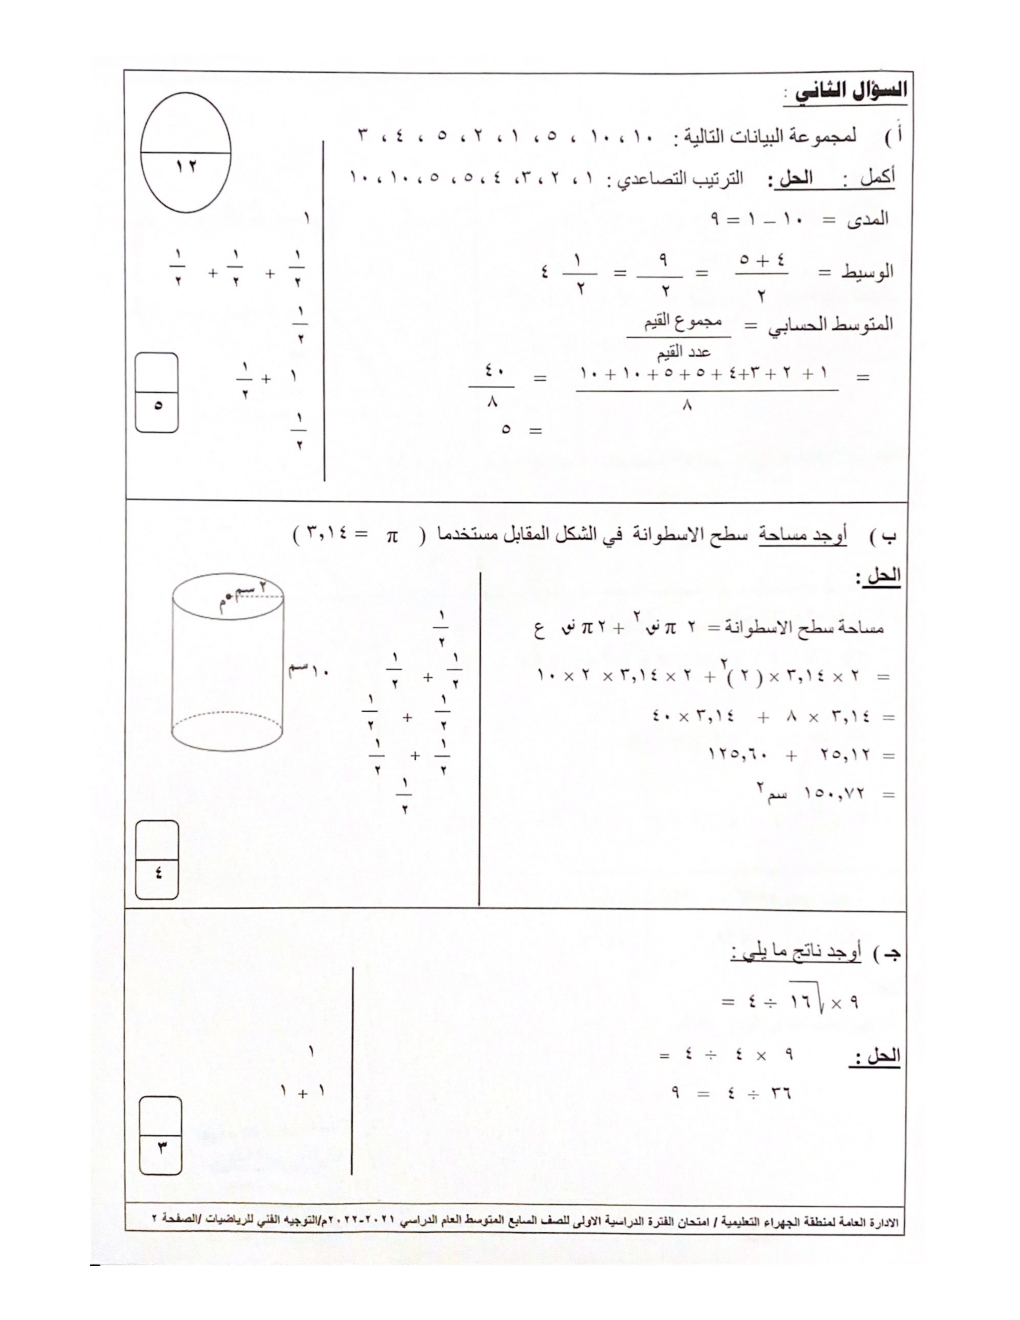 السؤال الثاني :
أ ) لمجموعة البيانات التالية : ١٠ ، ١٠ ، ٥ ، ١ ، ٢ ، ٥ ، ٤ ، ٣
١٢
أكمل : الحل : الترتيب التصاعدي : ١ ، ٢ ، ٣، ٤ ، ٥ ، ٥ ، ١٠ ، ١٠
المدى = ١٠ – ١ = ٩
١
الوسيط = (٤ + ٥)/٢ = ٩/٢ = ٤ ١/٢
١/٢ + ١/٢ + ١/٢
المتوسط الحسابي = مجموع القيم / عدد القيم
١/٢
= (١ + ٢ + ٣+ ٤ + ٥ + ٥ + ١٠ + ١٠)/٨ = ٤٠/٨
١ + ١/٢
= ٥
١/٢
٥
ب ) أوجد مساحة سطح الاسطوانة في الشكل المقابل مستخدما ( π = ٣,١٤ )
الحل :
٢ سم
م
١٠ سم
مساحة سطح الاسطوانة = ٢ π نق٢ + ٢ π نق ع
١/٢
= ٢ × ٣,١٤ × ( ٢ )٢ + ٢ × ٣,١٤ × ٢ × ١٠
١/٢ + ١/٢
= ٣,١٤ × ٨ + ٣,١٤ × ٤٠
١/٢ + ١/٢
= ٢٥,١٢ + ١٢٥,٦٠
١/٢ + ١/٢
= ١٥٠,٧٢ سم٢
١/٢
٤
جـ ) أوجد ناتج ما يلي :
٩ × √١٦ ÷ ٤ =
الحل : ٩ × ٤ ÷ ٤ =
١
٣٦ ÷ ٤ = ٩
١ + ١
٣
الادارة العامة لمنطقة الجهراء التعليمية / امتحان الفترة الدراسية الاولى للصف السابع المتوسط العام الدراسي ٢٠٢١-٢٠٢٢م/التوجيه الفني للرياضيات /الصفحة ٢